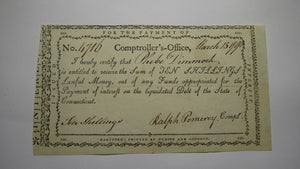 FOR THE PAYMENT OF
No. 4716 Comptroller's-Office, March 18 1790
I hereby certify that Dimmock
is entitled to receive the Sum of TEN SHILLINGS
Lawful Money, out of any Funds appropriated for the
Payment of interest on the liquidated Debt of the State of
Connecticut.
Ten Shillings Ralph Pomeroy Comp.
HARTFORD: PRINTED BY HUDSON AND GOODWIN.